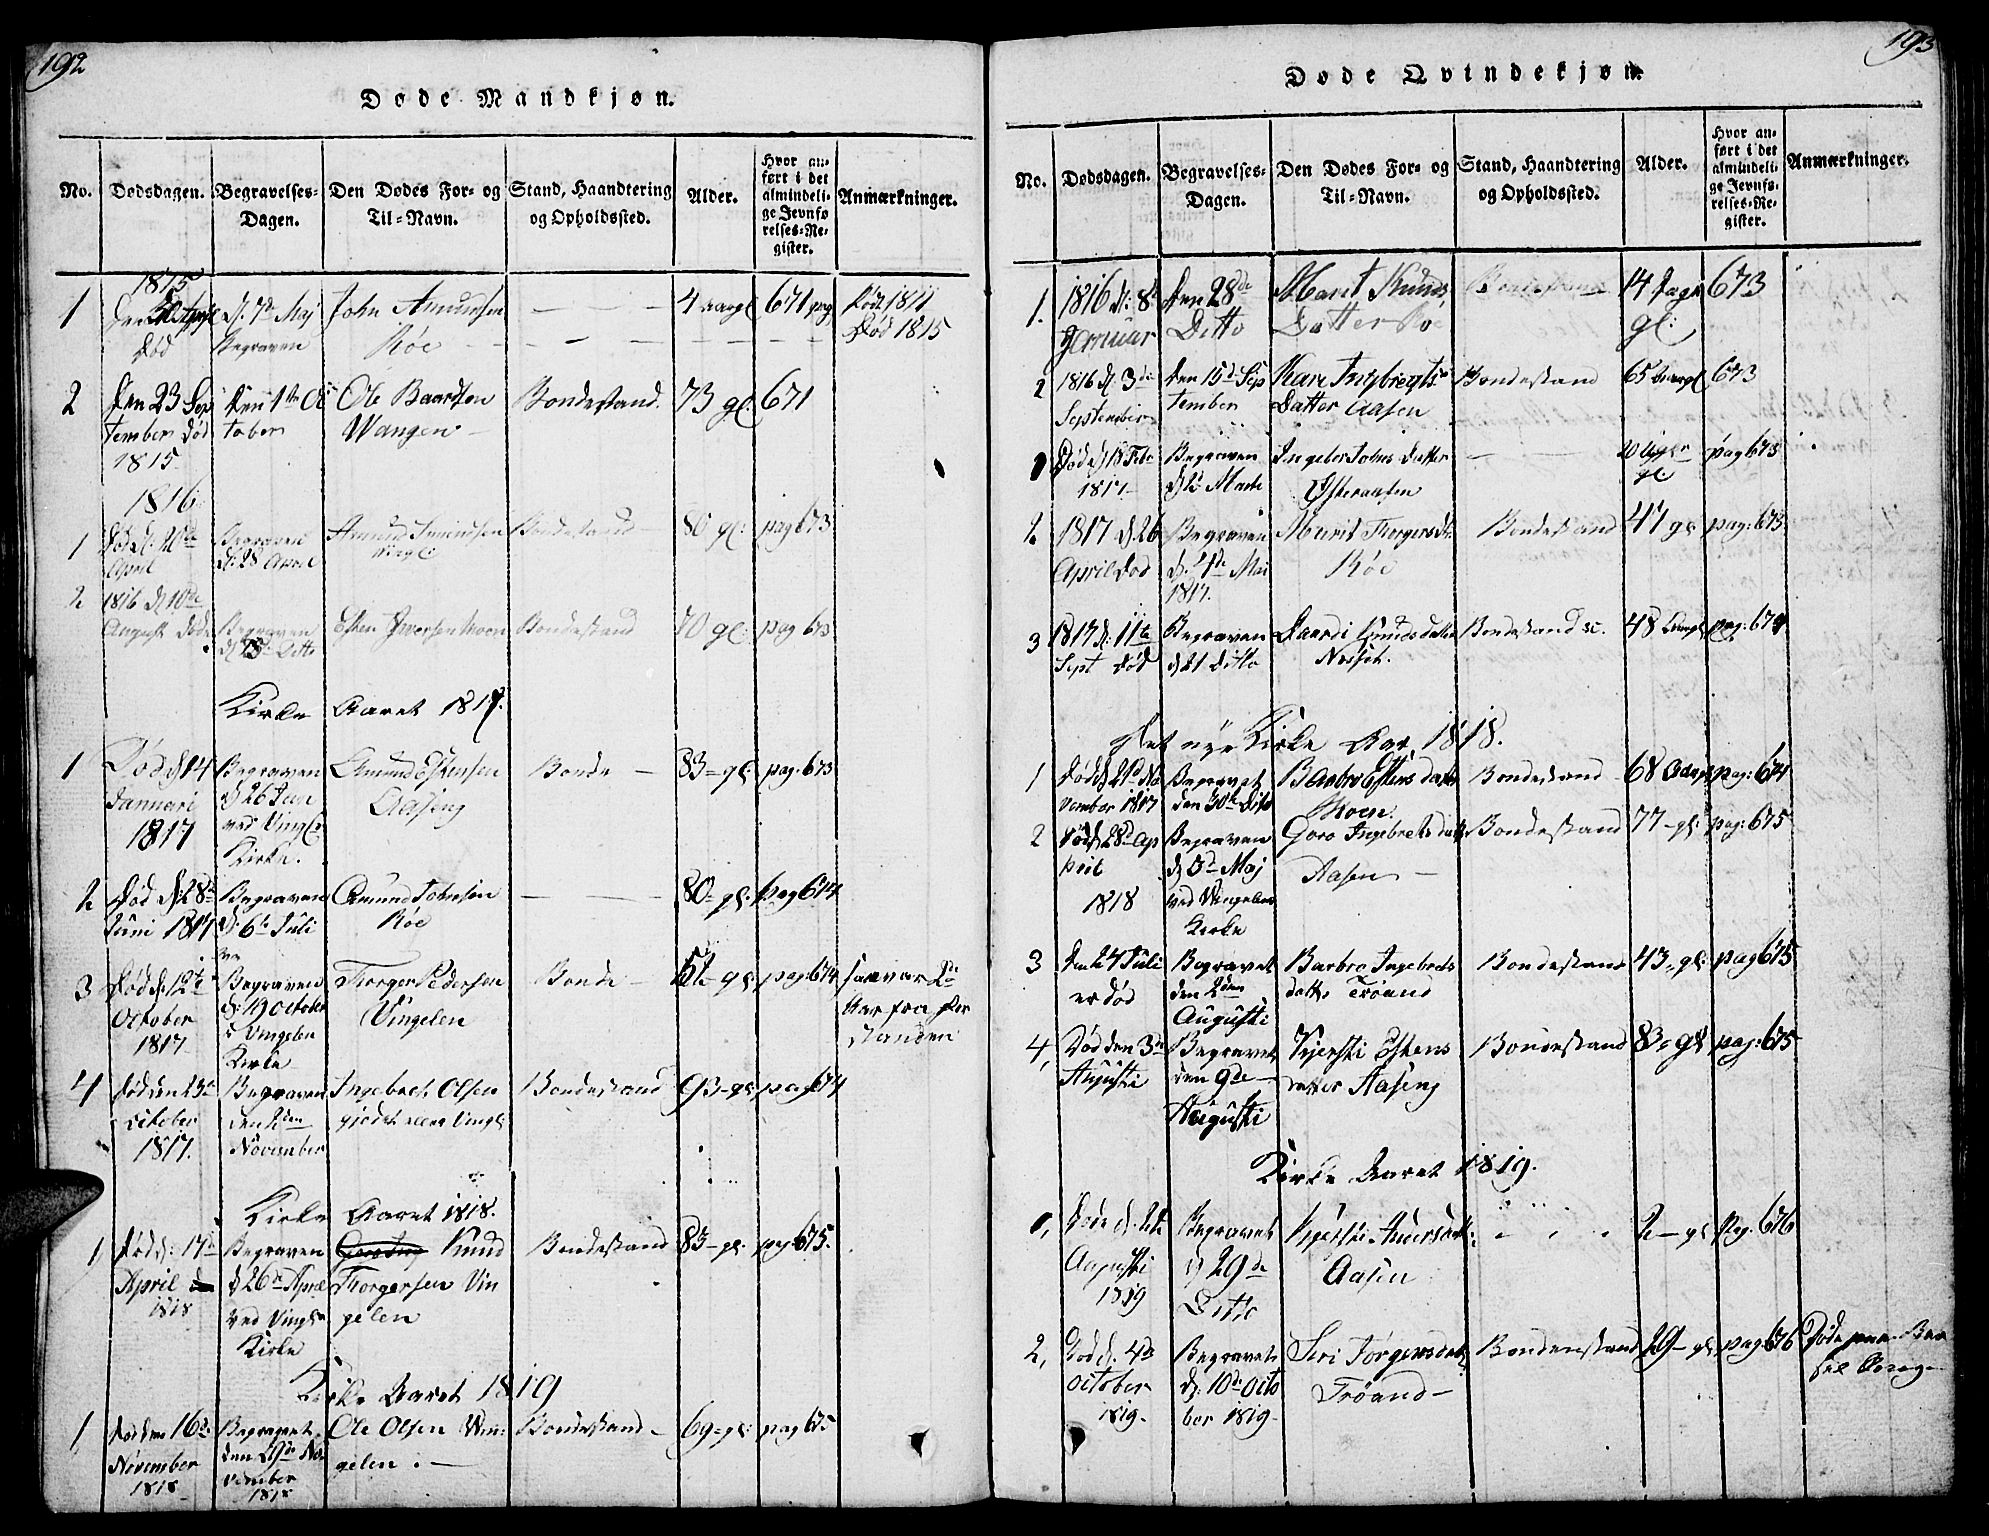 192
Døde Mandkjøn.
No. Dødsdagen. Begravelses-Dagen. Den Dødes For- og Til-Navn. Stand, Haandtering og Opholdssted. Alder. Hvor anført i det almindelige Jevnførelses-Register. Anmærkninger.
1815
1 Død d. 7de Maj Begraven John Amundsen Røe 4 aar gl 671 pag Født 1811 Død 1815
2 Den 23 September død 1815 Den 1ste October Ole Baardsen Wangen Bondestand. 73 gl: 671
1816
1 Død d: 20de April Begraven d: 28 April Amund Bondestand 80 gl: pag 673
2 1816 d 10de August Døde Begraven d 18: Ditto Esten Iversen Moen Bondestand 70 gl: pag 673
Kirke Aaret 1817.
1 Død d 14 Januari 1817 Begraven d 26 Jan ved Vingl: Kirke. Amund Estensen Aaseng Bonde 83 gl: pag: 673
2 Død d: 28de Juni 1817 Begraven d: 6te Juli Amund Johnsen Røe 80 gl: pag 674
3 Død d: 12te October 1817 Begraven d: 19 October i Vingelen Kirke Thorger Pedersen Vingelen Bonde 52 gl: pag: 674 saa var 2de Aar fra For standen
4 Død den 23de October 1817. Begraven den 2den November Ingebreth Olsen Vingl: Bondestand 93 gl: pag 674
Kirke Aaret 1818.
1 Død d: 17de April 1818 Begraven d 26de April ved Vingl: Kirke Knud Thorgersen Vingelen Bondestand 83 gl: pag 675.
Kirke Aaret 1819
1 Død den 16de: November 1818 Begravet den 29de November 1818 Ole Olsen Vingelen. Bondestand 69 gl: pag 675
193
Døde Qvindekjøn.
No. Dødsdagen. Begravelses-Dagen. Den Dødes For- og Til-Navn. Stand, Haandtering og Opholdssted. Alder. Hvor anført i det almindelige Jevnførelses-Register. Anmærkninger.
1. 1816 d: 8de Januar Den 28de Ditto Marit Knuds Datter Røe Bondestand 14 Dage gl: 673
2 1816 d. 3de September Den 15de September Kari Ingebregts Datter Aasen Bondestand 65 Aar gl 673
1 Død d 18 Febr 1817 Begraven d 2 Marti Ingebor Johns Datter Østeraasen 20 Uger gl. pag 673
2 1817 d 26 April Død Begraven d. 4de Mai 1817. Marit Thorgersdtr Røe Bondestand 47 gl pag: 673
3 1817 d: 11te Sept Død Begraven d 21 Ditto Baardi Knudsdatter Bondestand sc. 48 Aar gl pag: 674
Det nye Kirke Aar 1818.
1 Død d 21de November 1817 Begravet den 30te Dito Barbro Estens datter Moen. Bondestand 68 Aar gl pag: 674
2 Død d 28de April 1818 Begraven d 3de Maj ved Vingelens Kirke Goro Ingebrets datter Aasen Bondestand 77 gl: pag: 675
3 Den 24 Juli er død Begravet den 2den Augusti Barbro Ingebrets datter Trøand Bondestand 43 gl: pag 675
4, Død den 3de Augusti Begravet den 9de Augusti Kjersti Estens datter Aaseng Bondestand 83 gl pag: 675
Kirke Aaret 1819.
1, Døde d. 22 Augusti 1819 Begravet d 29de Ditto Kjersti Andersdatter: Aasen 2 gl Pag. 676
2, Død d. 4de October 1819. Begravet d: 10de October 1819 Siri Jørgensdatter Trøand Bondenstand 29 gl pag 676 Døde